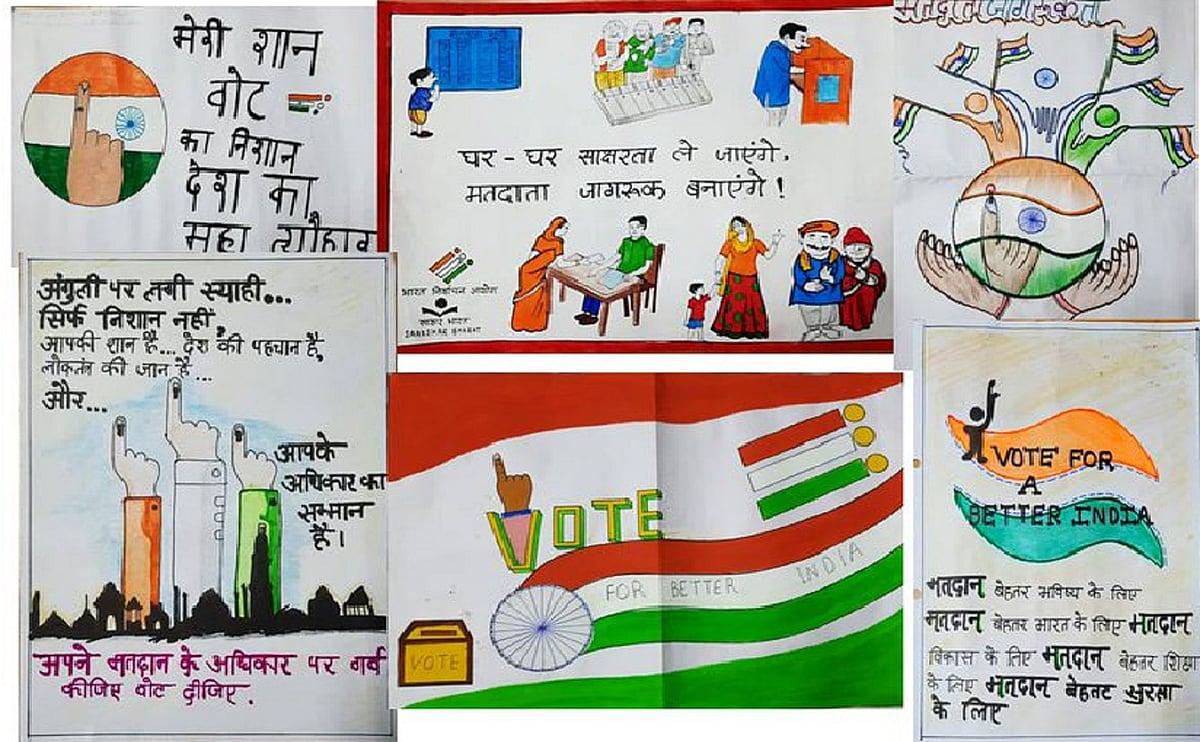 मेरी शान
वोट
का निशान
देश का
महा त्यौहार
घर - घर साक्षरता ले जाएंगे,
मतदाता जागरूक बनाएंगे !
भारत निर्वाचन आयोग
साक्षर भारत
SAAKSHAR BHARAT
मतदाता जागरूकता
अंगुली पर लगी स्याही...
सिर्फ निशान नहीं,
आपकी शान है... देश की पहचान है,
लोकतंत्र की जान है...
और...
आपके
अधिकार का
सम्मान
है।
अपने मतदान के अधिकार पर गर्व
कीजिए वोट दीजिए.
VOTE
FOR BETTER INDIA
VOTE
VOTE FOR
A
BETTER INDIA
मतदान बेहतर भविष्य के लिए
मतदान बेहतर भारत के लिए मतदान
विकास के लिए मतदान बेहतर शिक्षा
के लिए मतदान बेहतर सुरक्षा
के लिए